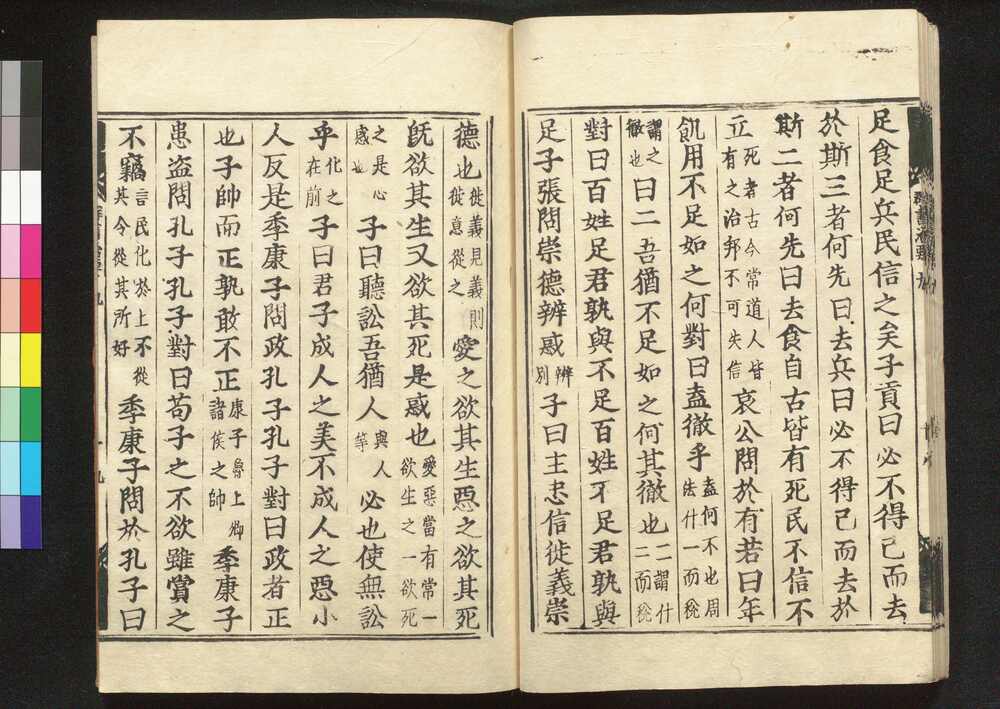 足食足兵民信之矣子貢曰必不得已而去
於斯三者何先曰去兵曰必不得已而去於
斯二者何先曰去食自古皆有死民不信不
立死者古今常道人皆有之治邦不可失信哀公問於有若曰年
飢用不足如之何對曰盍徹乎盍何不也周法什一而稅
謂之徹也曰二吾猶不足如之何其徹也二謂什二而稅
對曰百姓足君孰與不足百姓不足君孰與
足子張問崇德辨惑辨別子曰主忠信徙義崇
德也徙義見義則徙意從之愛之欲其生惡之欲其死
既欲其生又欲其死是惑也愛惡當有常一欲生之一欲死
之是心惑也子曰聽訟吾猶人與人等必也使無訟
乎化之在前子曰君子成人之美不成人之惡小
人反是季康子問政孔子孔子對曰政者正
也子帥而正孰敢不正康子魯上卿諸侯之帥季康子
患盜問孔子孔子對曰苟子之不欲雖賞之
不竊言民化於上不從其令從其所好季康子問於孔子曰
群書治要九